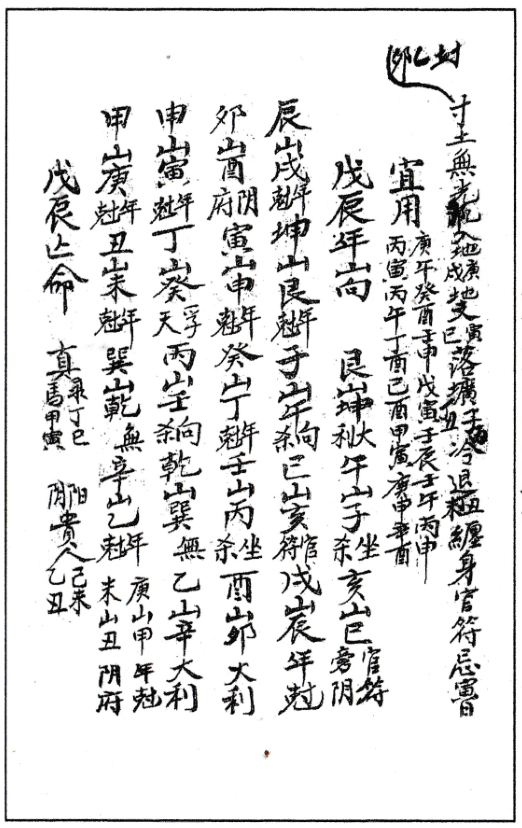 封乙夘
寸土無光入地廣地戌寅巳落擴子丑冷退丑纏身官符忌寅日
宜用庚午癸酉壬申戊寅壬辰壬午丙申
丙寅丙午丁酉己酉甲寅庚申辛酉
戊辰年山向 艮山坤大利午山子坐杀亥山巳官符旁阴
辰山戌年尅坤山艮年尅子山午向杀巳山亥官符戌山辰年尅
夘山酉阴府寅山申年尅癸山丁年尅壬山丙坐杀酉山夘大利
申山寅年尅丁山癸浮天丙山壬向杀乾山巽無乙山辛大利
甲山庚年尅丑山未年尅巽山乾無辛山乙年尅庚山甲年尅未山丑阴府
戊辰亡命 真禄丁巳馬甲寅 阳阴貴人己未乙丑